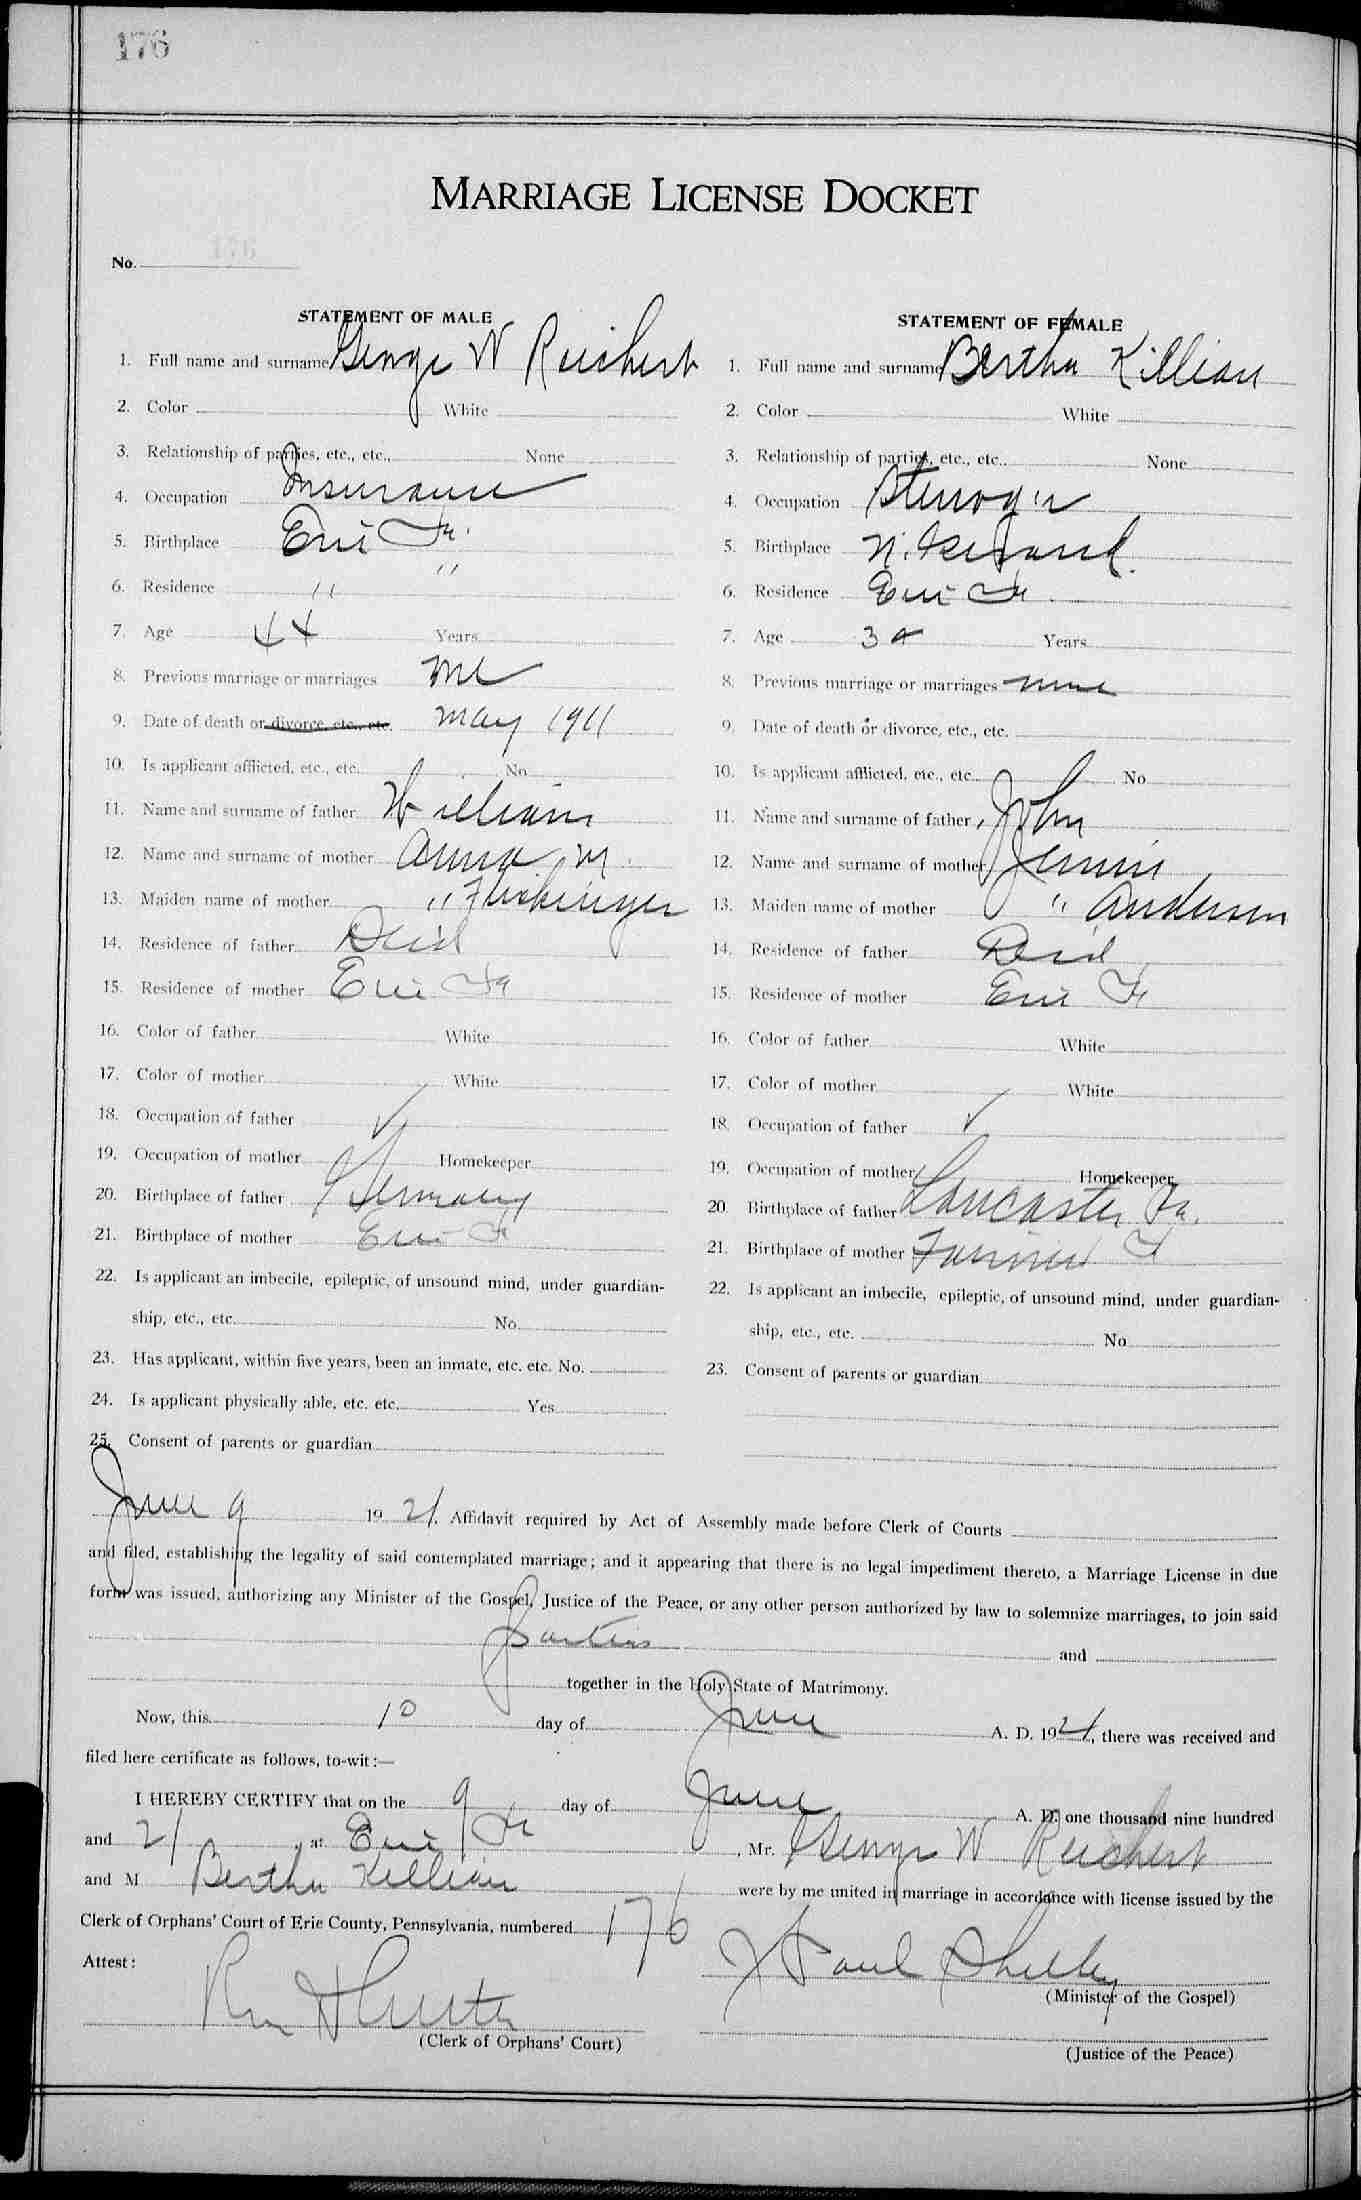 176
MARRIAGE LICENSE DOCKET
No. 176
STATEMENT OF MALE
1. Full name and surname George W Reichert
2. Color White
3. Relationship of parties, etc., etc., None
4. Occupation Insurance
5. Birthplace Erie Pa.
6. Residence " "
7. Age 44 Years
8. Previous marriage or marriages one
9. Date of death or divorce, etc., etc. May 1911
10. Is applicant afflicted, etc., etc. No
11. Name and surname of father William
12. Name and surname of mother Anna M.
13. Maiden name of mother "
14. Residence of father Dead
15. Residence of mother Erie Pa
16. Color of father White
17. Color of mother White
18. Occupation of father ✓
19. Occupation of mother Homekeeper
20. Birthplace of father Germany
21. Birthplace of mother Erie Pa
22. Is applicant an imbecile, epileptic, of unsound mind, under guardian-
ship, etc., etc. No
23. Has applicant, within five years, been an inmate, etc. etc. No.
24. Is applicant physically able, etc. etc. Yes
25. Consent of parents or guardian
STATEMENT OF FEMALE
1. Full name and surname Bertha Killian
2. Color White
3. Relationship of parties, etc., etc. None
4. Occupation Stenog'r
5. Birthplace
6. Residence Erie Pa
7. Age Years
8. Previous marriage or marriages none
9. Date of death or divorce, etc., etc.
10. Is applicant afflicted, etc., etc. No
11. Name and surname of father John
12. Name and surname of mother Jennie
13. Maiden name of mother " Anderson
14. Residence of father Dead
15. Residence of mother Erie Pa
16. Color of father White
17. Color of mother White
18. Occupation of father ✓
19. Occupation of mother Homekeeper
20. Birthplace of father Lancaster Pa.
21. Birthplace of mother Fairview Pa
22. Is applicant an imbecile, epileptic, of unsound mind, under guardian-
ship, etc., etc. No
23. Consent of parents or guardian
June 9 1921. Affidavit required by Act of Assembly made before Clerk of Courts
and filed, establishing the legality of said contemplated marriage; and it appearing that there is no legal impediment thereto, a Marriage License in due
form was issued, authorizing any Minister of the Gospel, Justice of the Peace, or any other person authorized by law to solemnize marriages, to join said
parties and
together in the Holy State of Matrimony.
Now, this 10 day of June A. D. 1921, there was received and
filed here certificate as follows, to-wit:—
I HEREBY CERTIFY that on the 9 day of June A. D. one thousand nine hundred
and 21, at Erie Pa, Mr. George W Reichert
and M Bertha Killian were by me united in marriage in accordance with license issued by the
Clerk of Orphans' Court of Erie County, Pennsylvania, numbered 176
Attest: J Paul Shelley
(Minister of the Gospel)
(Clerk of Orphans' Court)
(Justice of the Peace)